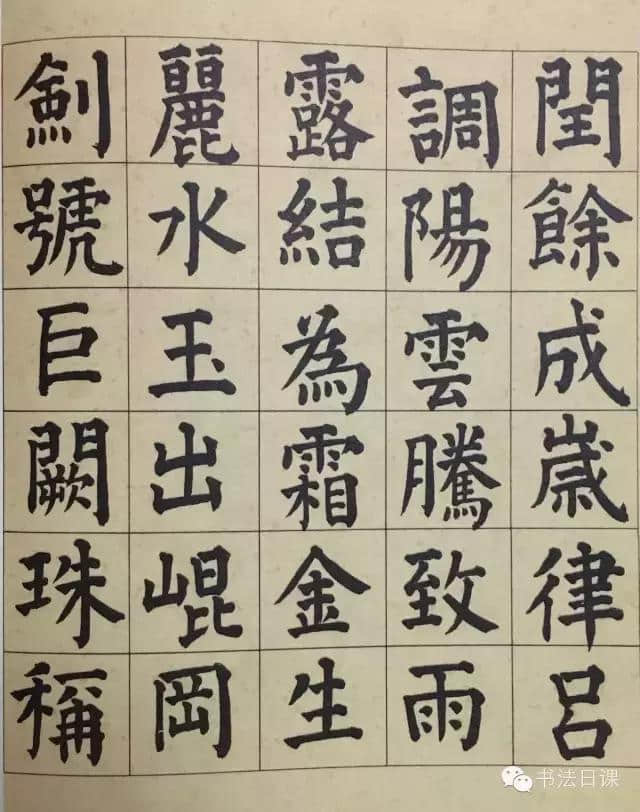 閏餘成歲律呂
調陽雲騰致雨
露結為霜金生
麗水玉出崐岡
劍號巨闕珠稱
书法日课